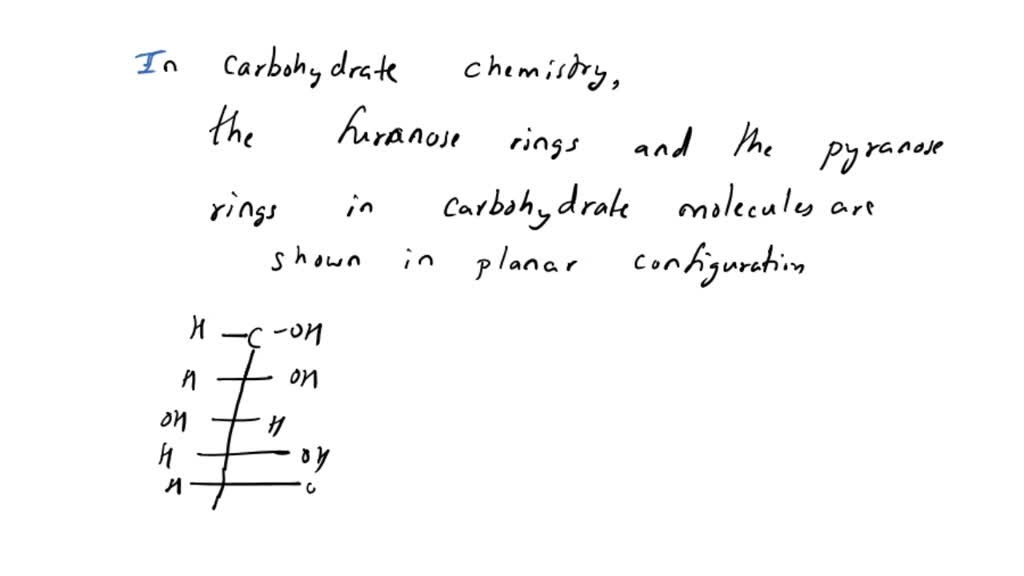 In carbohydrate chemistry,
the furanose rings and the pyranose
rings in carbohydrate molecules are
shown in planar configuration
H - C - OH
H OH
OH H
H OH
H O